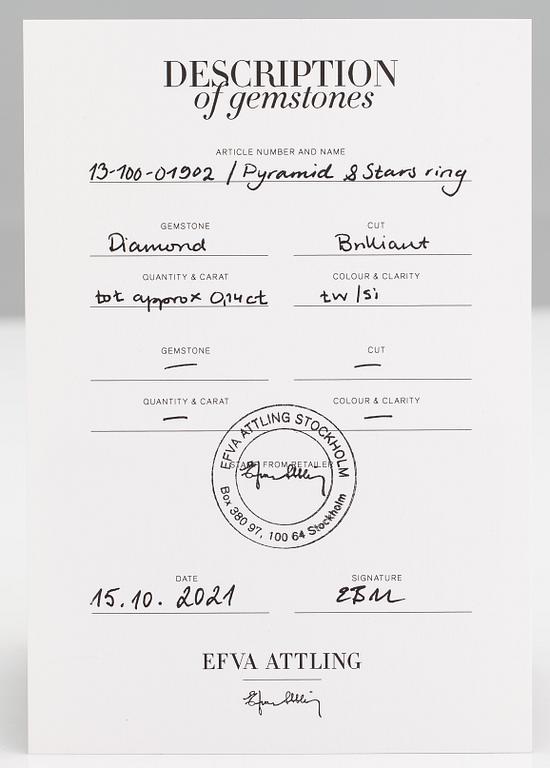 DESCRIPTION
of gemstones
ARTICLE NUMBER AND NAME
13-100-01902 / Pyramid & Stars ring
GEMSTONE CUT
Diamond Brilliant
QUANTITY & CARAT COLOUR & CLARITY
tot approx 0,14ct tw/si
GEMSTONE CUT
— —
QUANTITY & CARAT COLOUR & CLARITY
— —
EFVA ATTLING STOCKHOLM
STAMP FROM RETAILER
Efva Attling
Box 380 97, 100 64 Stockholm
DATE SIGNATURE
15.10. 2021
EFVA ATTLING
Efva Attling